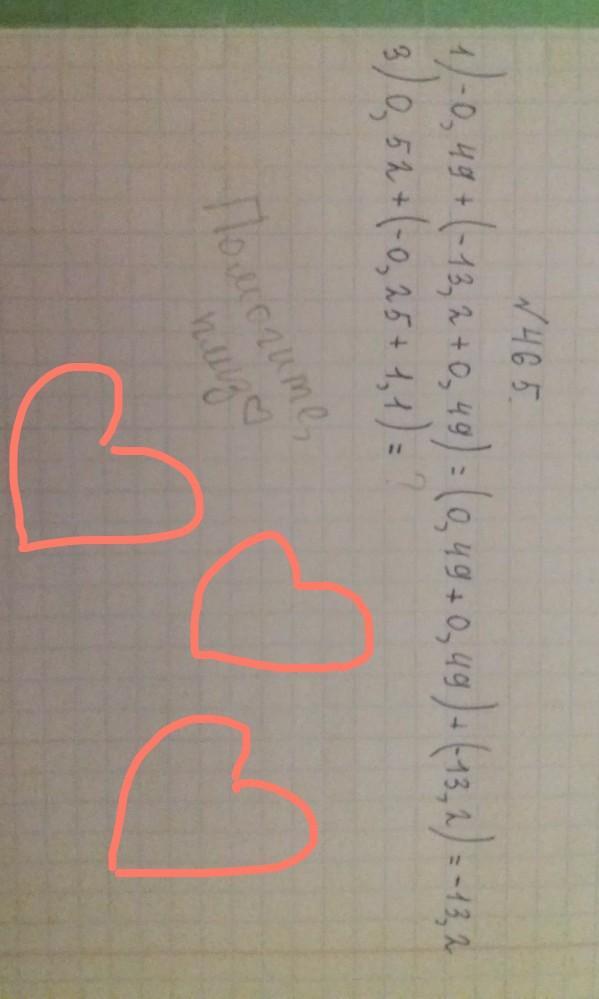 №465.
1) -0,49+(-13,2+0,49)=(0,49+0,49)+(-13,2)=-13,2
3) 0,52+(-0,25+1,1)=?
Помогите,
плиз♡